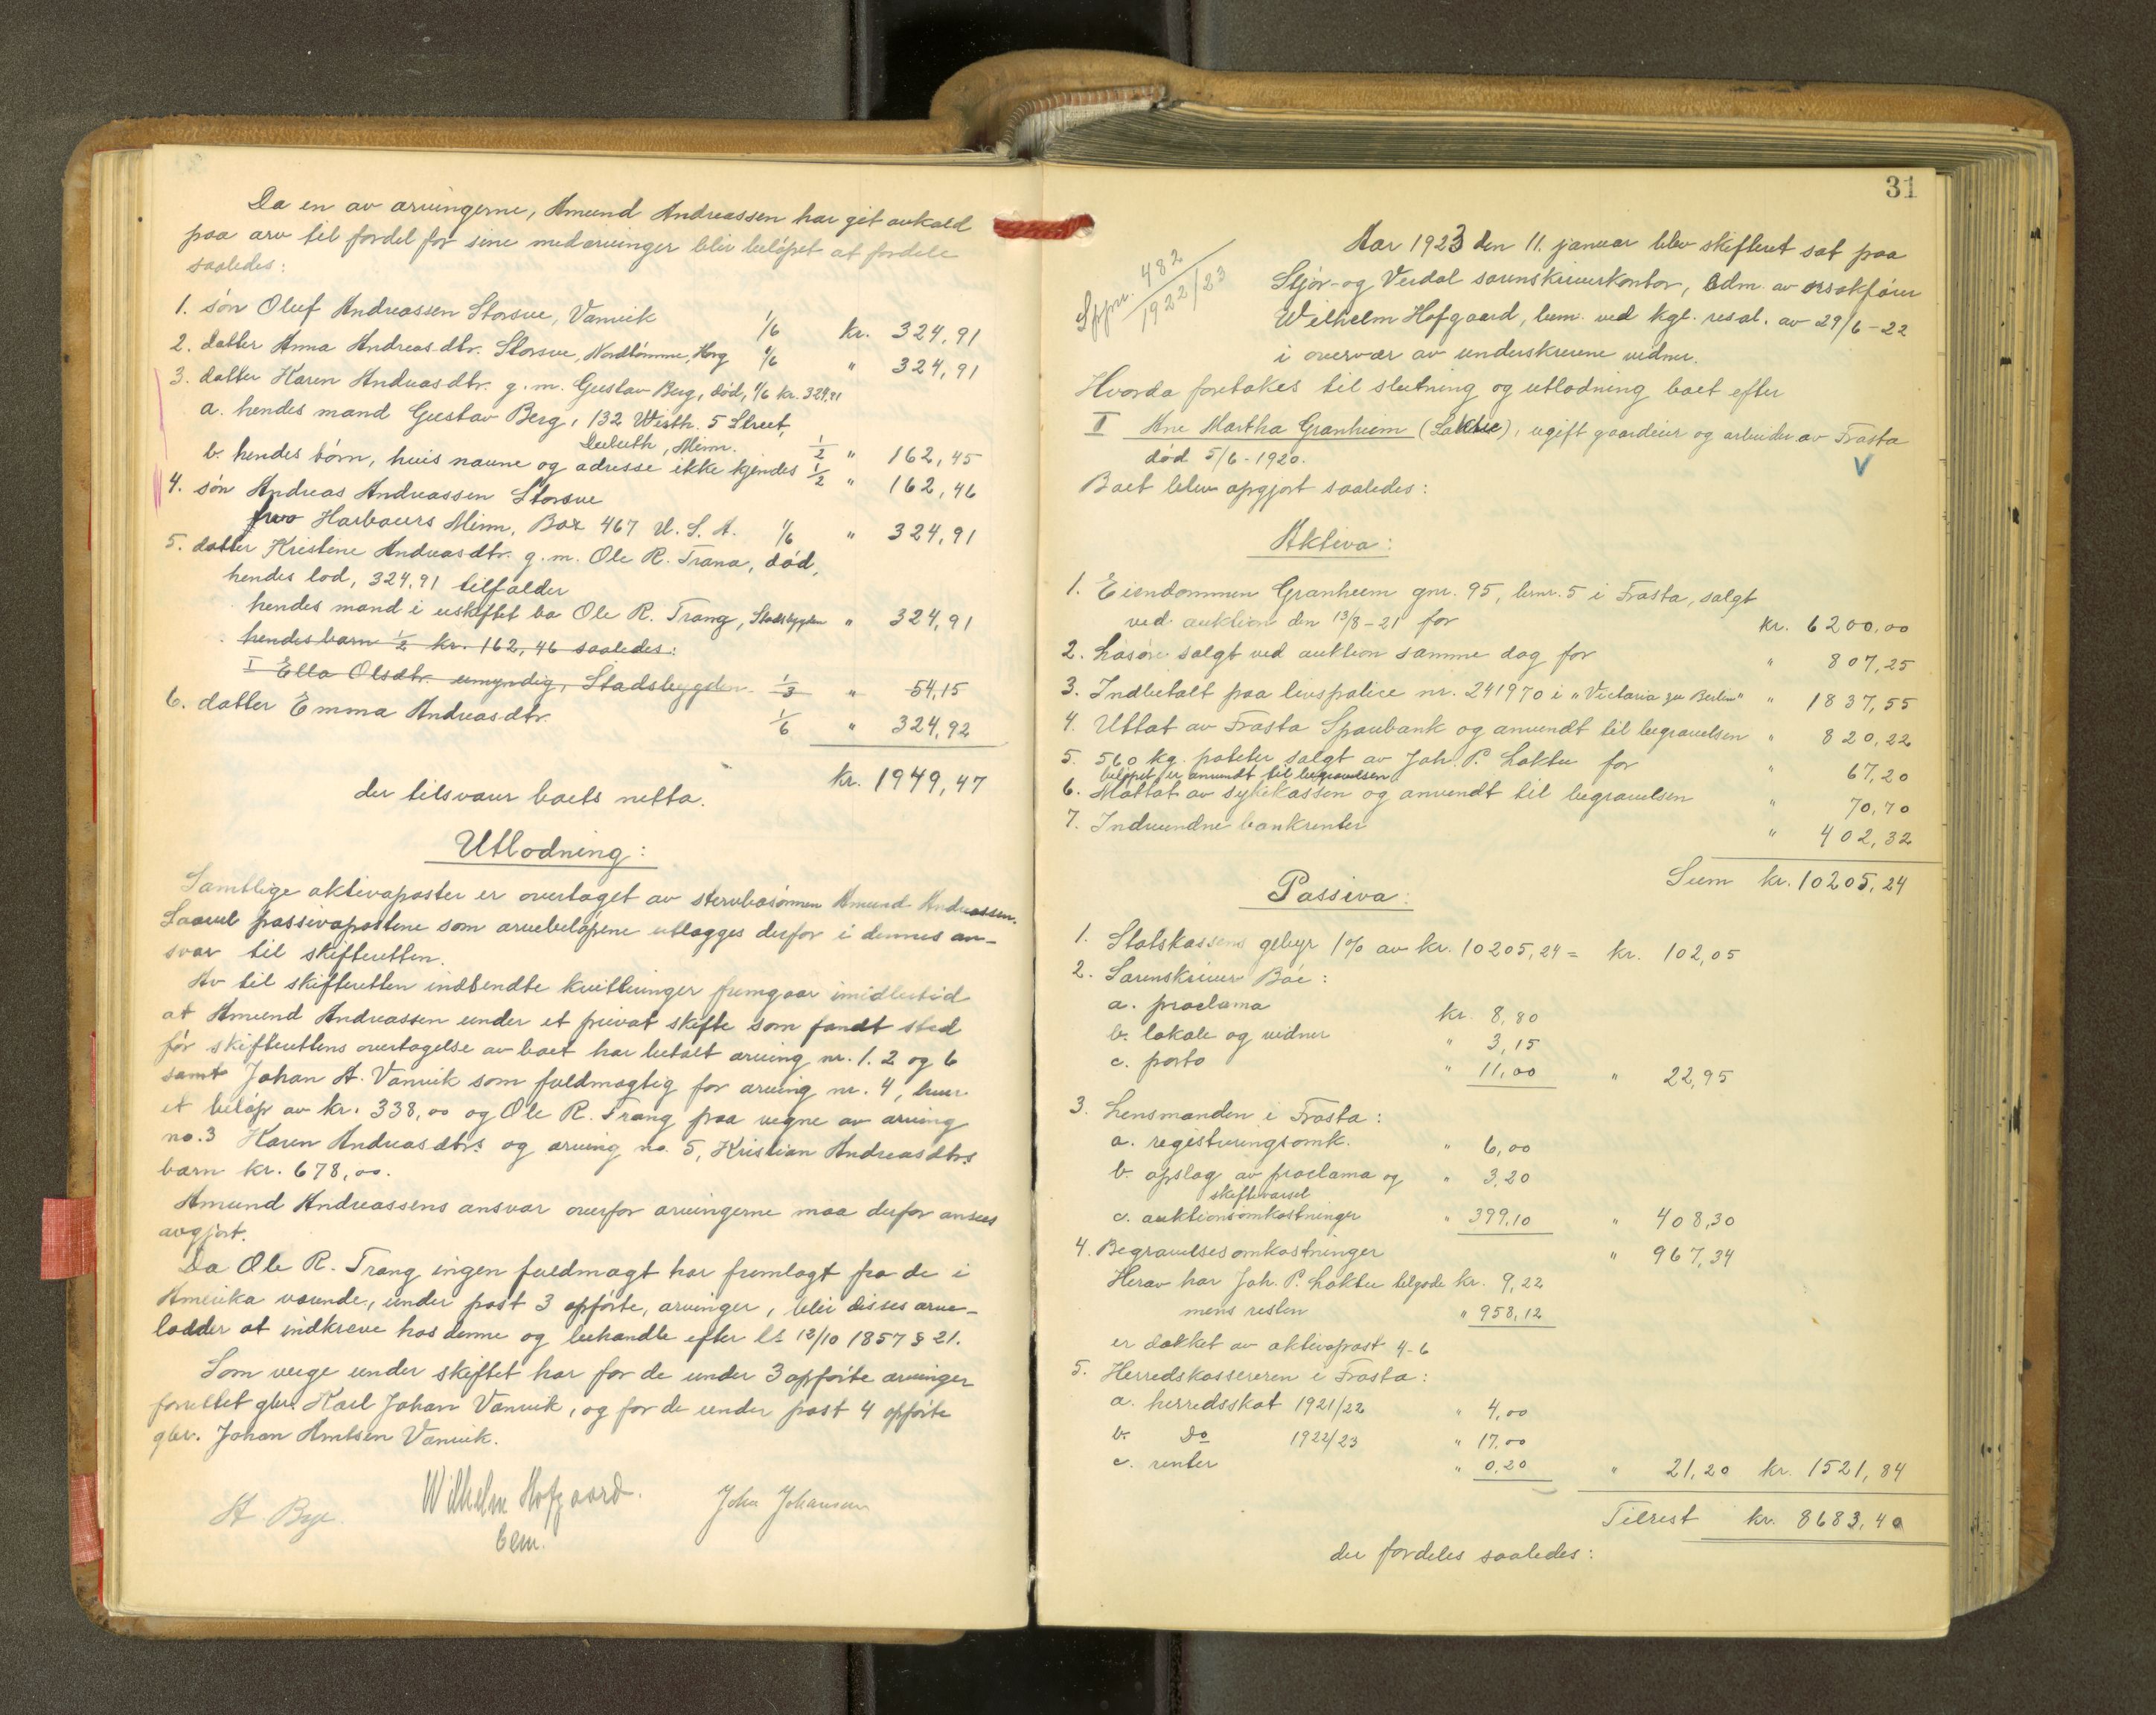 Da en av arvingerne, Amund Andreassen har git avkald
paa arv til fordel for sine medarvinger blir beløpet at fordele
saaledes:
1. søn Oluf Andreassen Storsve, Vanvik 1/6 kr. 324,91
2. datter Anna Andreasdtr. Storsve, Nordtømme, Horg 1/6 " 324,91
3. datter Karen Andreasdtr. g.m. Gustav Berg, død, 1/6 kr. 324,91
a. hendes mand Gustav Berg, 132 Westh. 5 Street,
Duluth, Minn. 1/2 " 162,45
b. hendes børn, hvis navne og adresse ikke kjendes 1/2 " 162,46
4. søn Andreas Andreassen Storsve
Harbours Minn, Box 467 U.S.A. 1/6 " 324,91
5. datter Kristine Andreasdtr. g.m. Ole R. Trana, død,
hendes lod, 324,91 tilfalder
hendes mand i uskiftet bo Ole R. Trang, Stadsbygden " 324,91
hendes barn 1/2 kr. 162,46 saaledes:
I Ella Olsdtr. umyndig, Stadsbygden 1/3 " 54,15
6. datter Emma Andreasdtr. 1/6 " 324,92
kr. 1949,47
der tilsvarer boets netto.
Utlodning:
Samtlige aktivaposter er overtaget av stervbosønnen Amund Andreassen.
Saavel passivapostene som arvebeløpene utlægges derfor i dennes an-
svar til skifteretten.
Av til skifteretten indsendte kvitteringer fremgaar imidlertid
at Amund Andreassen under et privat skifte som fandt sted
før skifterettens overtagelse av boet har betalt arving nr. 1. 2 og 6
samt Johan A. Vanvik som fuldmægtig for arving nr. 4, hver
et beløp av kr. 338,00 og Ole R. Trang paa vegne av arving
no. 3 Karen Andreasdtrs og arving no. 5, Kristian Andreasdtrs
barn kr. 678,00.
Amund Andreassens ansvar overfor arvingerne maa derfor ansees
avgjort.
Da Ole R. Trang ingen fuldmagt har fremlagt fra de i
Amerika værende, under post 3 opførte, arvinger, blir disses arve-
lodder at indkreve hos denne og behandle efter l. 12/10 1857 § 21.
Som verge under skiftet har for de under 3 opførte arvinger
forrettet gbr. Karl Johan Vanvik, og for de under post 4 opførte
gbr. Johan Arntsen Vanvik.
A. Bye. Wilhelm Hofgaard. John Johansen
bem.
31
Sppr. 482
1922/23
Aar 1923 den 11. januar blev skifteret sat paa
Stjør- og Verdal sorenskriverkontor, adm. av orsakfører
Wilhelm Hofgaard, bem. ved kgl. resol. av 29/6-22
i overvær av underskrevne vidner.
Hvorda foretokes til slutning og utlodning boet efter
I Ane Martha Granheim (Laktu), ugift gaardeier og arbeider av Frosta
død 5/6-1920.
Boet blev opgjort saaledes:
Aktiva:
1. Eiendommen Granheim gnr. 95, brnr. 5 i Frosta, solgt
ved auktion den 13/8-21 for kr. 6200,00
2. Løsøre solgt ved auktion samme dag for " 807,25
3. Indbetalt paa livspolice nr. 241970 i "Victoria zu Berlin" " 1837,55
4. Uttat av Frosta Sparebank og anvendt til begravelsen " 820,22
5. 560 kg. poteter solgt av Joh. P. Loktu for " 67,20
beløpet er anvendt til begravelsen
6. Mottat av sykekassen og anvendt til begravelsen " 70,70
7. Indvundne bankrenter " 402,32
Sum kr. 10205,24
Passiva:
1. Statskassens gebyr 1% av kr. 10205,24 = kr. 102,05
2. Sorenskriver Bøe:
a. proclama kr. 8,80
b. lokale og vidner " 3,15
c. porto " 11,00 " 22,95
3. Lensmanden i Frosta:
a. registreringsomk. " 6,00
b. opslag av proclama og " 3,20
skiftevarsel
c. auktionsomkostninger " 399,10 " 408,30
4. Begravelsesomkostninger " 967,34
Herav har Joh. P. Loktu tilgode kr. 9,22
mens resten " 958,12
er dækket av aktivapost 4-6
5. Herredskassereren i Frosta:
a. herredsskat 1921/22 " 4,00
b. do 1922/23 " 17,00
c. renter " 0,20 " 21,20 kr. 1521,84
Tilrest kr. 8683,40
der fordeles saaledes: